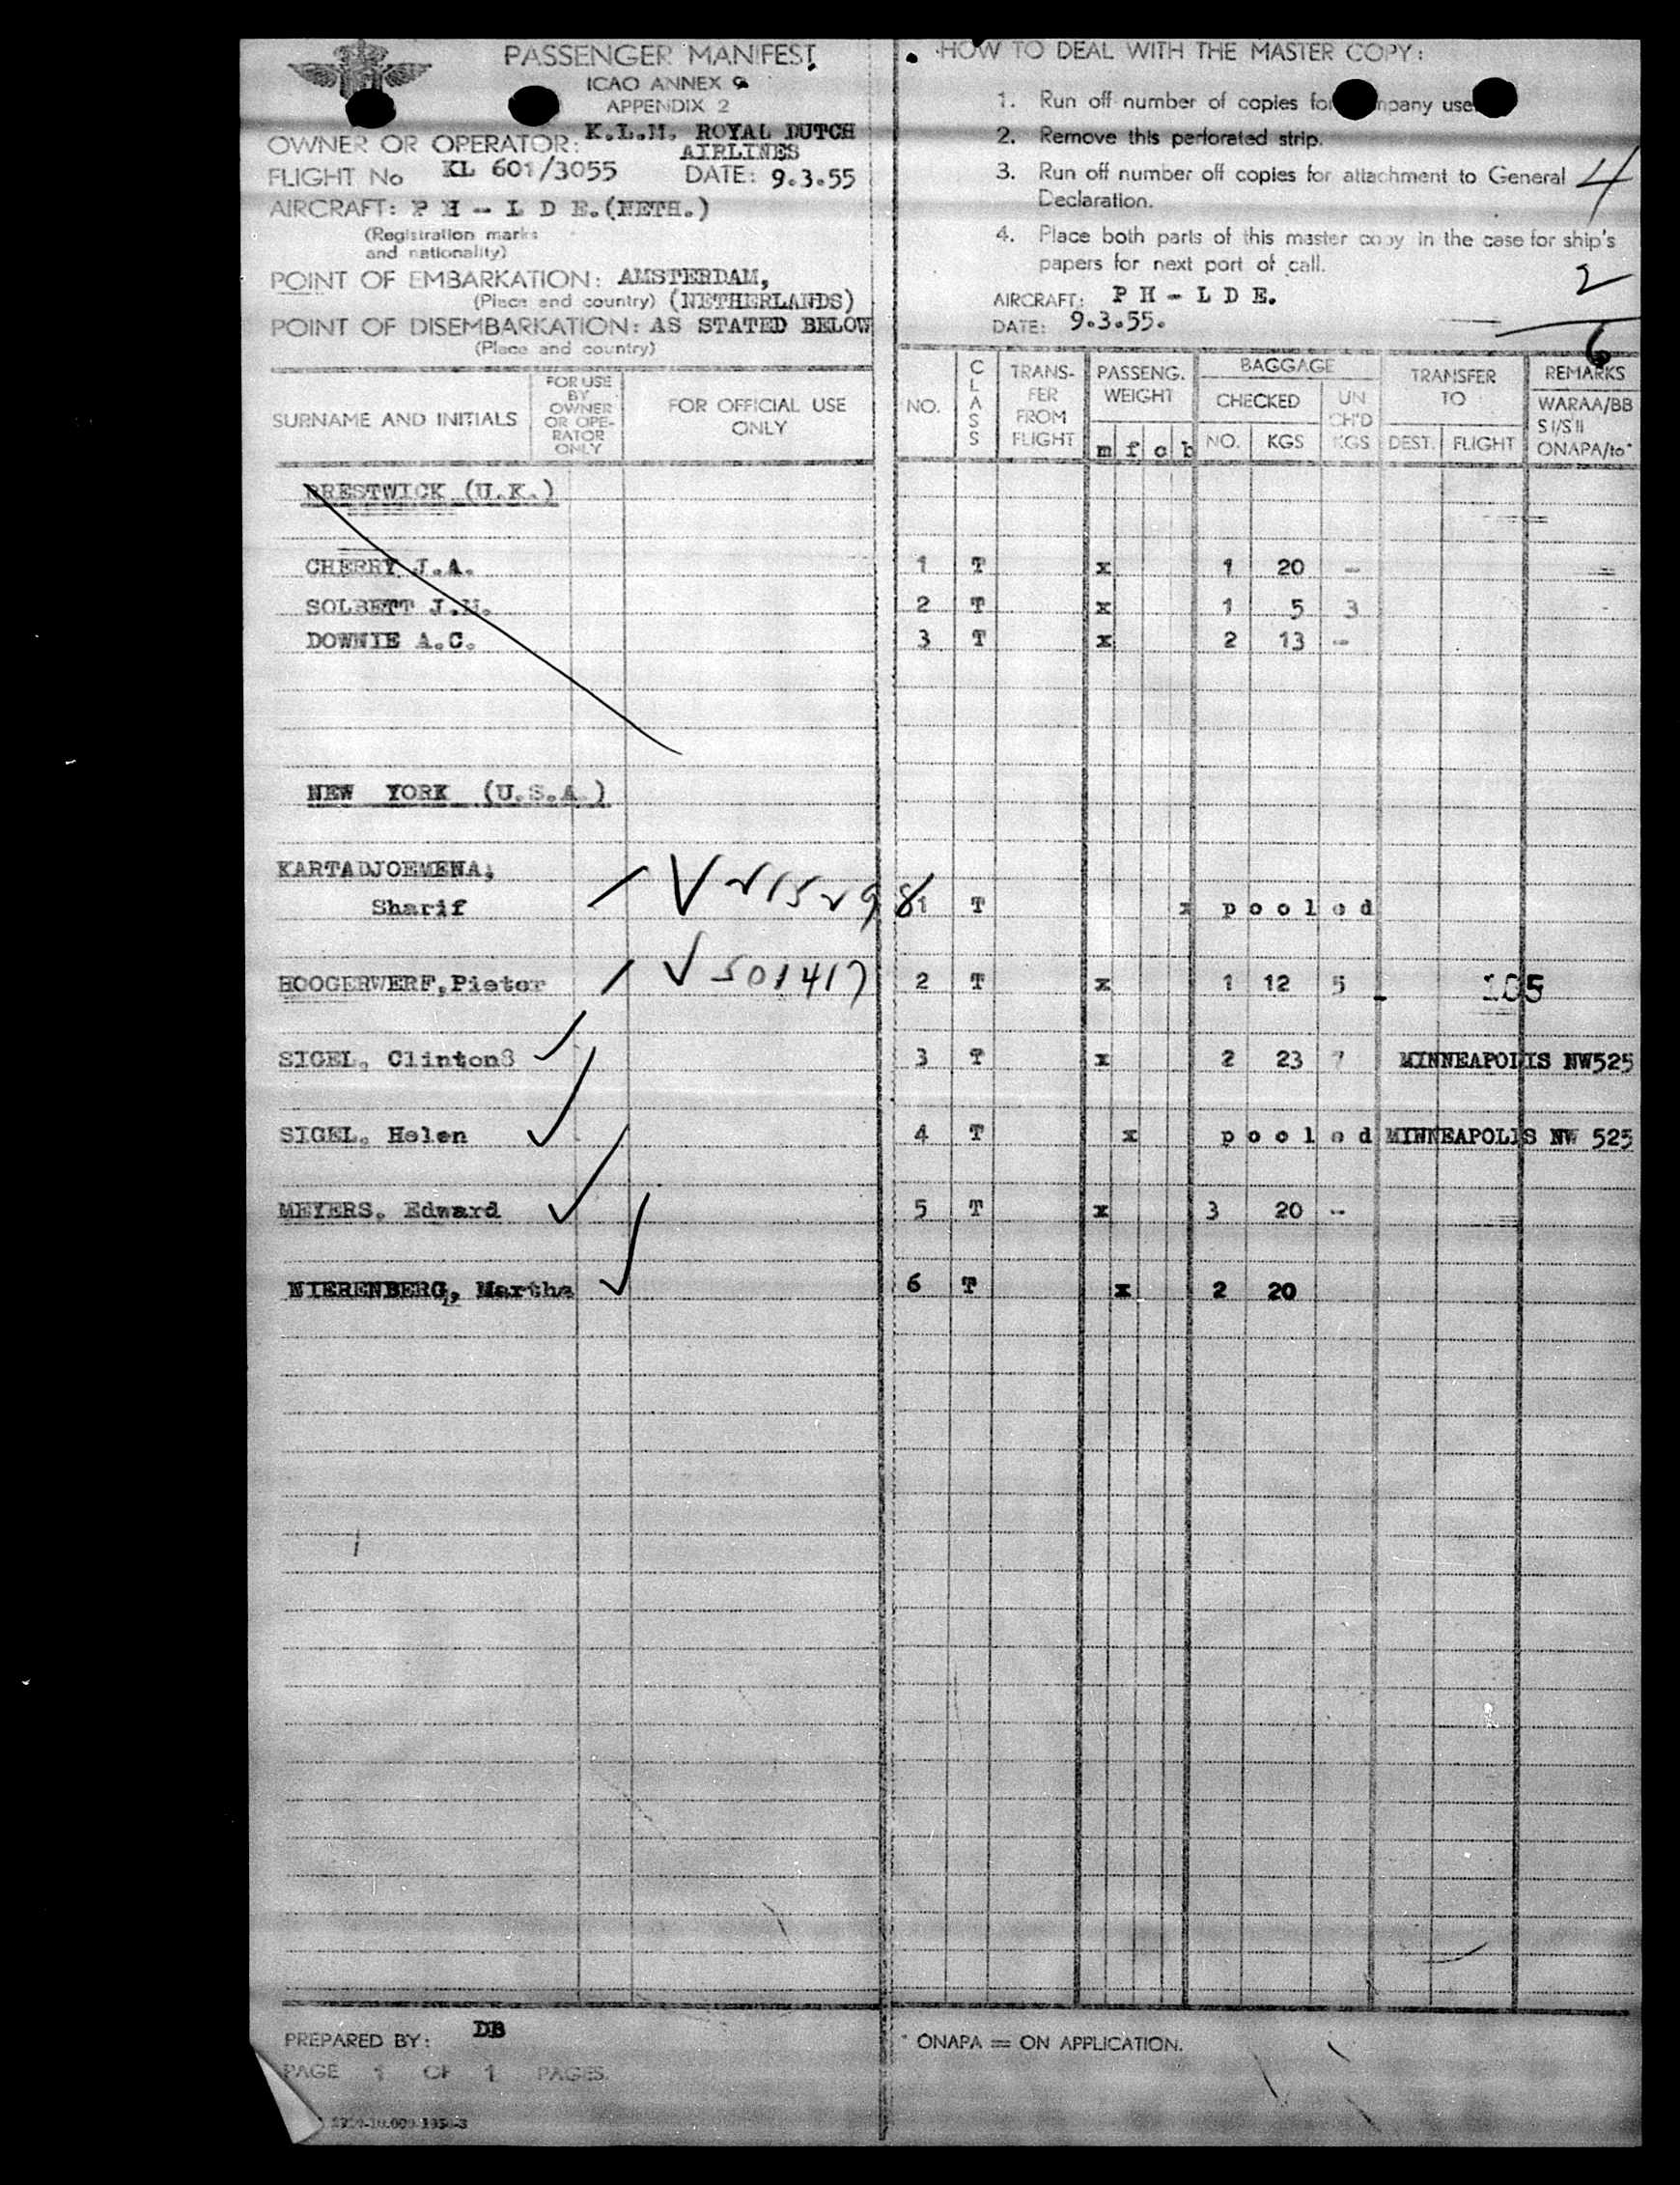 PASSENGER MANIFEST
ICAO ANNEX 9
APPENDIX 2
OWNER OR OPERATOR: K.L.M. ROYAL DUTCH
AIRLINES
FLIGHT No KL 601/3055 DATE: 9.3.55
AIRCRAFT: P H - L D E.(NETH.)
(Registration marks
and nationality)
POINT OF EMBARKATION: AMSTERDAM,
(Place and country) (NETHERLANDS)
POINT OF DISEMBARKATION: AS STATED BELOW
(Place and country)
HOW TO DEAL WITH THE MASTER COPY:
1. Run off number of copies for company use.
2. Remove this perforated strip.
3. Run off number off copies for attachment to General
Declaration.
4
4. Place both parts of this master copy in the case for ship's
papers for next port of call.
2
AIRCRAFT: P H - L D E.
DATE: 9.3.55.
6
SURNAME AND INITIALS
FOR USE
BY
OWNER
OR OPE-
RATOR
ONLY
FOR OFFICIAL USE
ONLY
NO.
CLASS
TRANS-
FER
FROM
FLIGHT
PASSENG.
WEIGHT
m f c b
BAGGAGE
CHECKED
NO. KGS
UN
CH'D
KGS
TRANSFER
TO
DEST. FLIGHT
REMARKS
WARAA/BB
SI/SII
ONAPA/to*
PRESTWICK (U.K.)
CHERRY J.A. 1 T x 1 20 -
SOLBETT J.M. 2 T x 1 5 3
DOWNIE A.C. 3 T x 2 13 -
NEW YORK (U.S.A.)
KARTADJOEMENA,
Sharif 1 T x pooled
HOOGERWERF,Pieter V 501417 2 T x 1 12 5 - 105
SIGEL, ClintonS 3 T x 2 23 7 MINNEAPOLIS NW525
SIGEL, Helen 4 T x pooled MINNEAPOLIS NW 525
MEYERS, Edward 5 T x 3 20 --
NIERENBERG, Martha 6 T x 2 20
PREPARED BY: DB
* ONAPA = ON APPLICATION.
PAGE 1 OF 1 PAGES